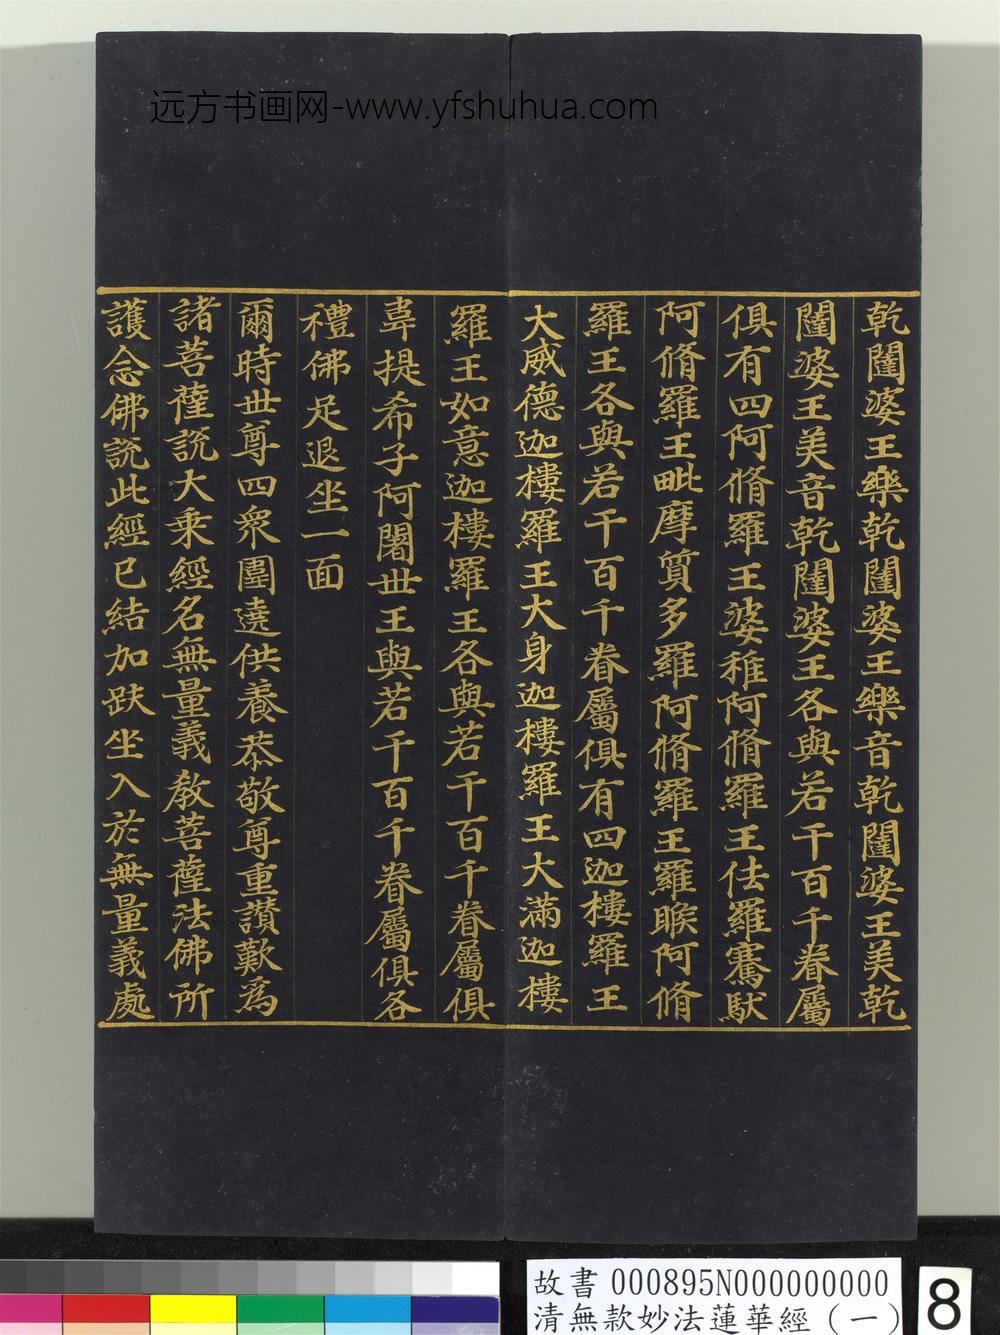 远方书画网-www.yfshuhua.com
乾闥婆王樂乾闥婆王樂音乾闥婆王美乾
闥婆王美音乾闥婆王各與若干百千眷屬
俱有四阿脩羅王婆稚阿脩羅王佉羅騫馱
阿脩羅王毗摩質多羅阿脩羅王羅睺阿脩
羅王各與若干百千眷屬俱有四迦樓羅王
大威德迦樓羅王大身迦樓羅王大滿迦樓
羅王如意迦樓羅王各與若干百千眷屬俱
韋提希子阿闍世王與若干百千眷屬俱各
禮佛足退坐一面
爾時世尊四眾圍遶供養恭敬尊重讚歎為
諸菩薩說大乘經名無量義教菩薩法佛所
護念佛說此經已結加趺坐入於無量義處
故書 000895N000000000
清無款妙法蓮華經(一)
8